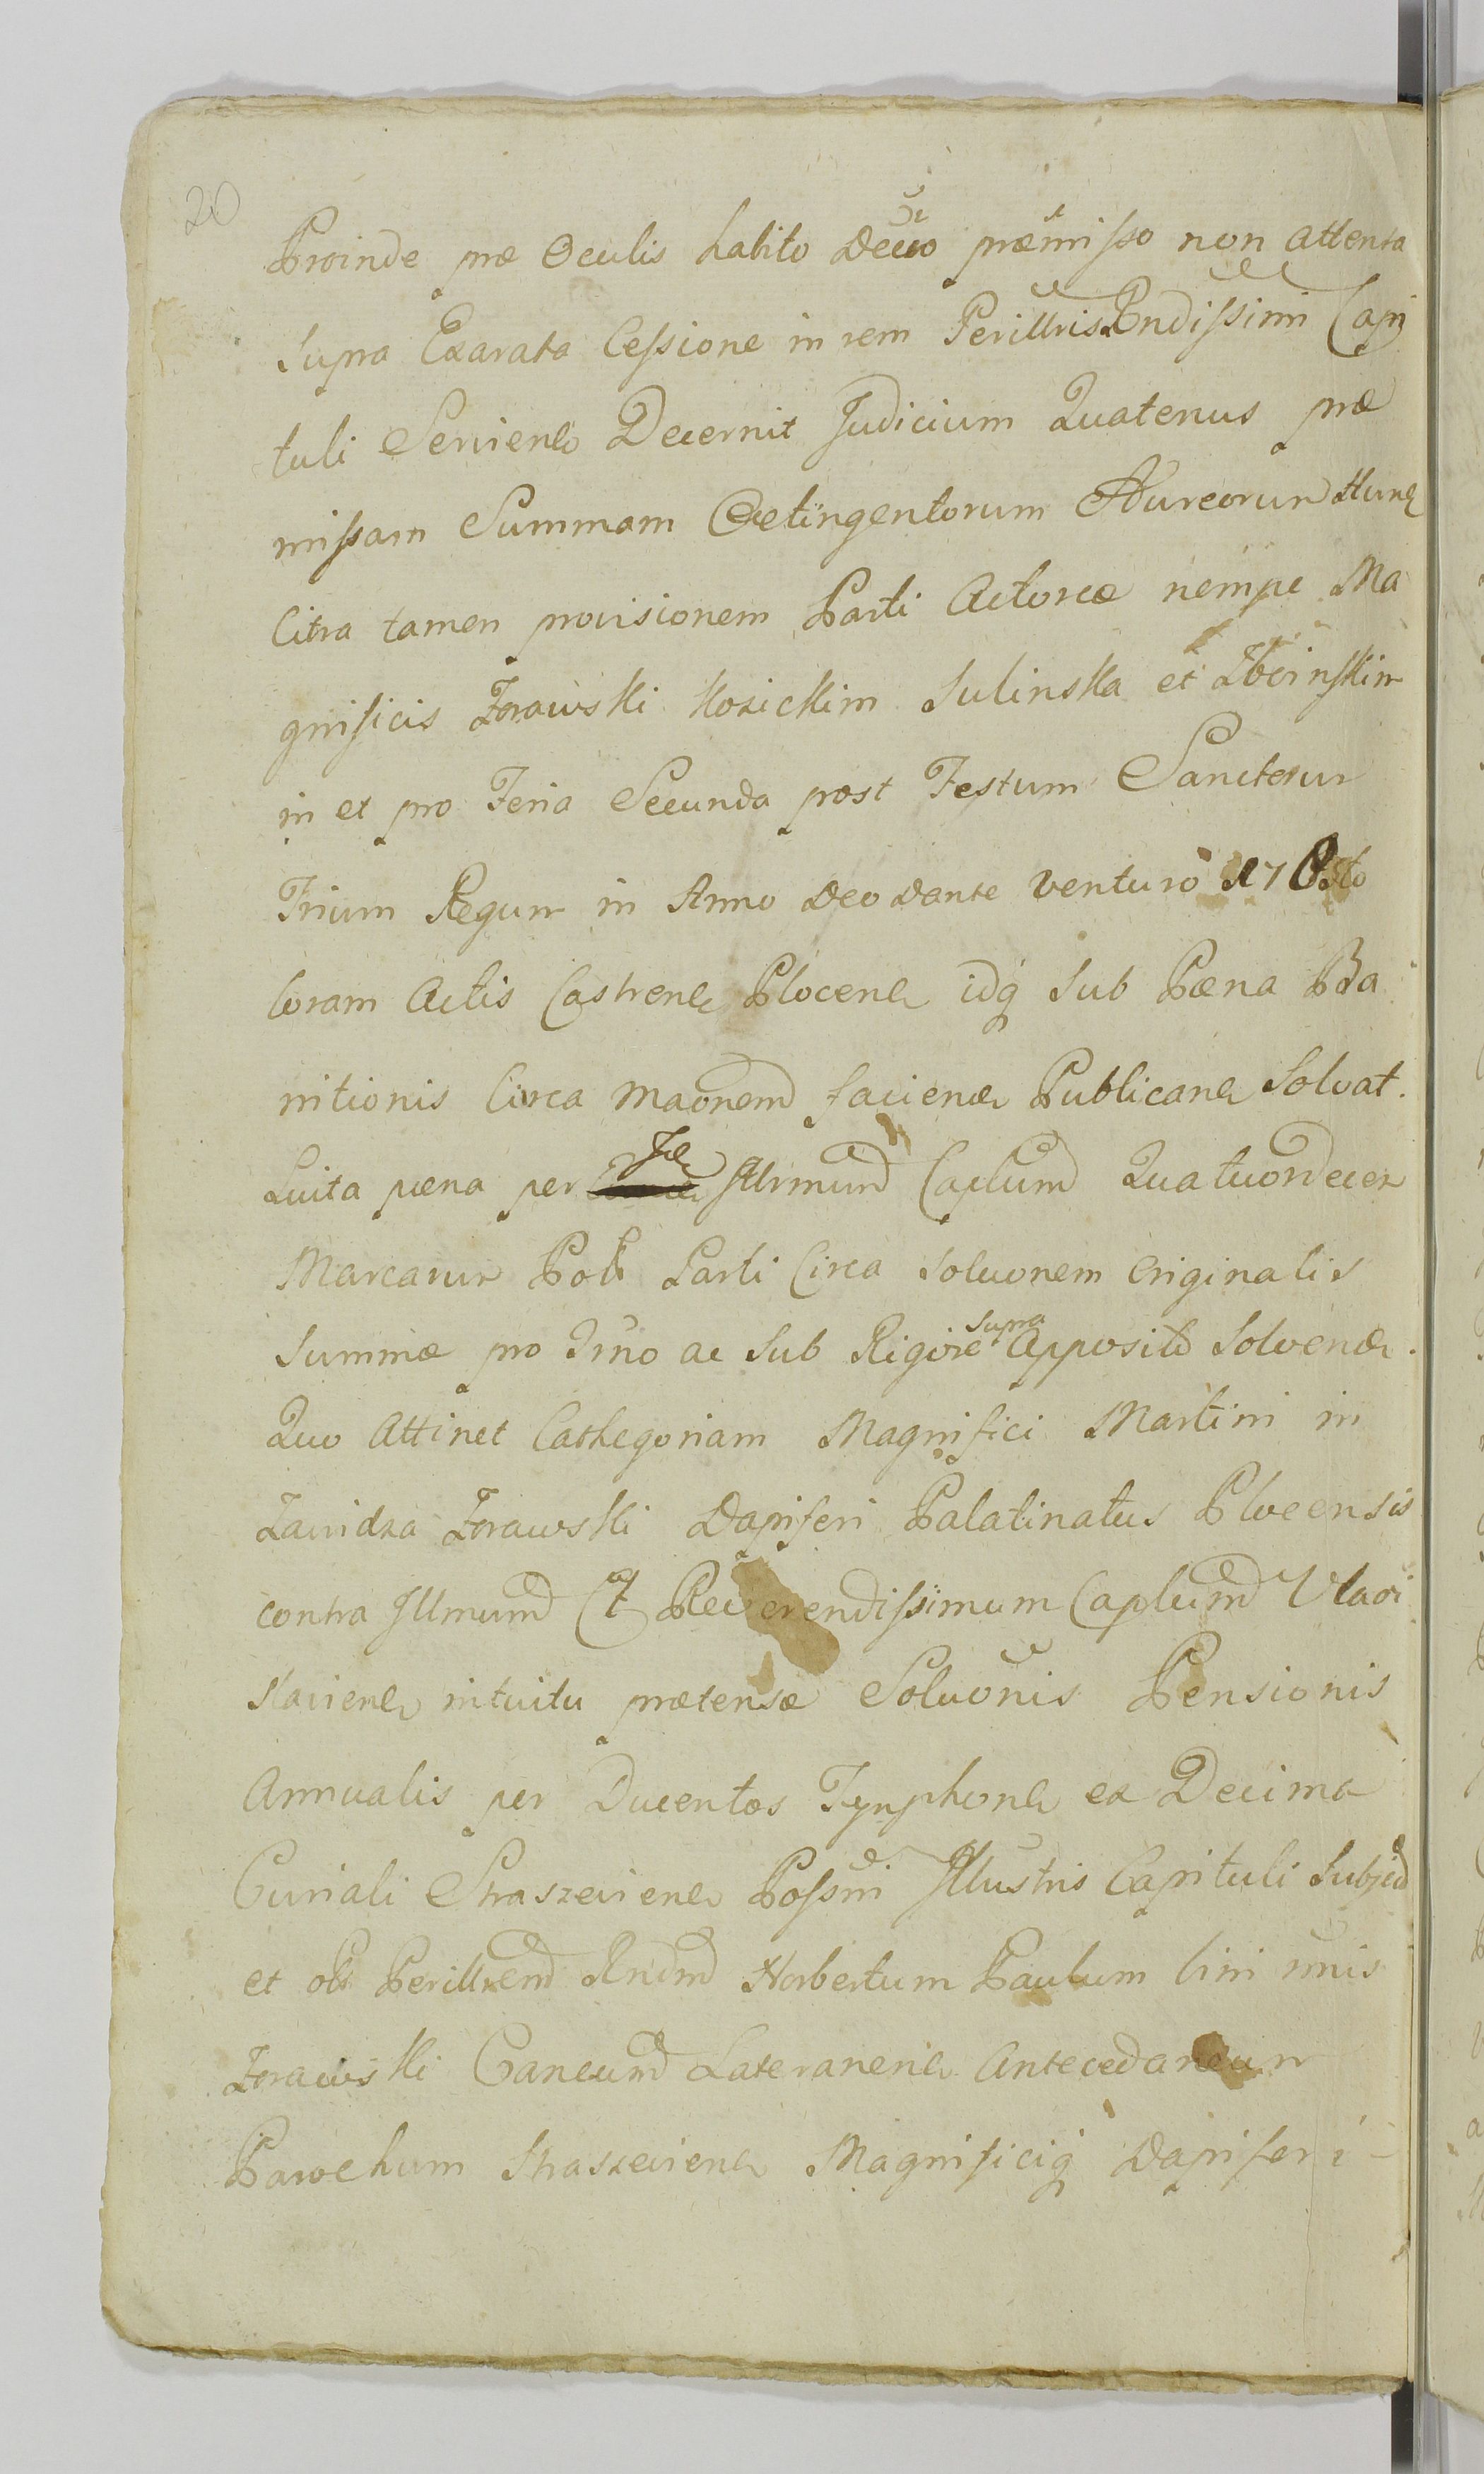 20
Proinde præ Oculis habito Decto præmisso non attenta
Supra Exarata Cessione in rem Perillris Rndissimi Capi
tuli Serviend Decernit Judicium Quatenus præ
missam Summam Octingentorum Aureorum Hung
Citra tamen provisionem Parti Actoreæ nempe Ma
gnificis Zorawski Kozickim Sulinska et Zboinskim
in et pro Feria Secunda post Festum Sanctorum
Trium Regum in Anno Deo Dante venturo
Coram Actis Castrens Plocens idq Sub Pæna Ba
nitionis Circa maonem faciend Publicand Solvat.
Luita pæna per Illrmum Caplum Quatuordecem
Marcarum Pol Parti Circa Soluonem Originalis
Summæ pro Imo ac Sub Rigore Supra Apposito Solvend.
Quo Attinet Cathegoriam Magnifici Martini in
Zawidza Zorawski Dapiferi Palatinatus Plocensis
contra Illmum et Reverendissimum Caplum Vladi
slaviens intuitu prætensæ Soluonis Pensionis
Annualis per Ducentos Tynphones ex Decima
Curiali Straszeviens Possni Illustris Capituli Subjec
et ob Perillrem Rndm Norbertum Paulum bini nnis
Zorawski Caneum Lateranens Antecedaneum
Parochum Straszeviens Magnificiq Dapiferi